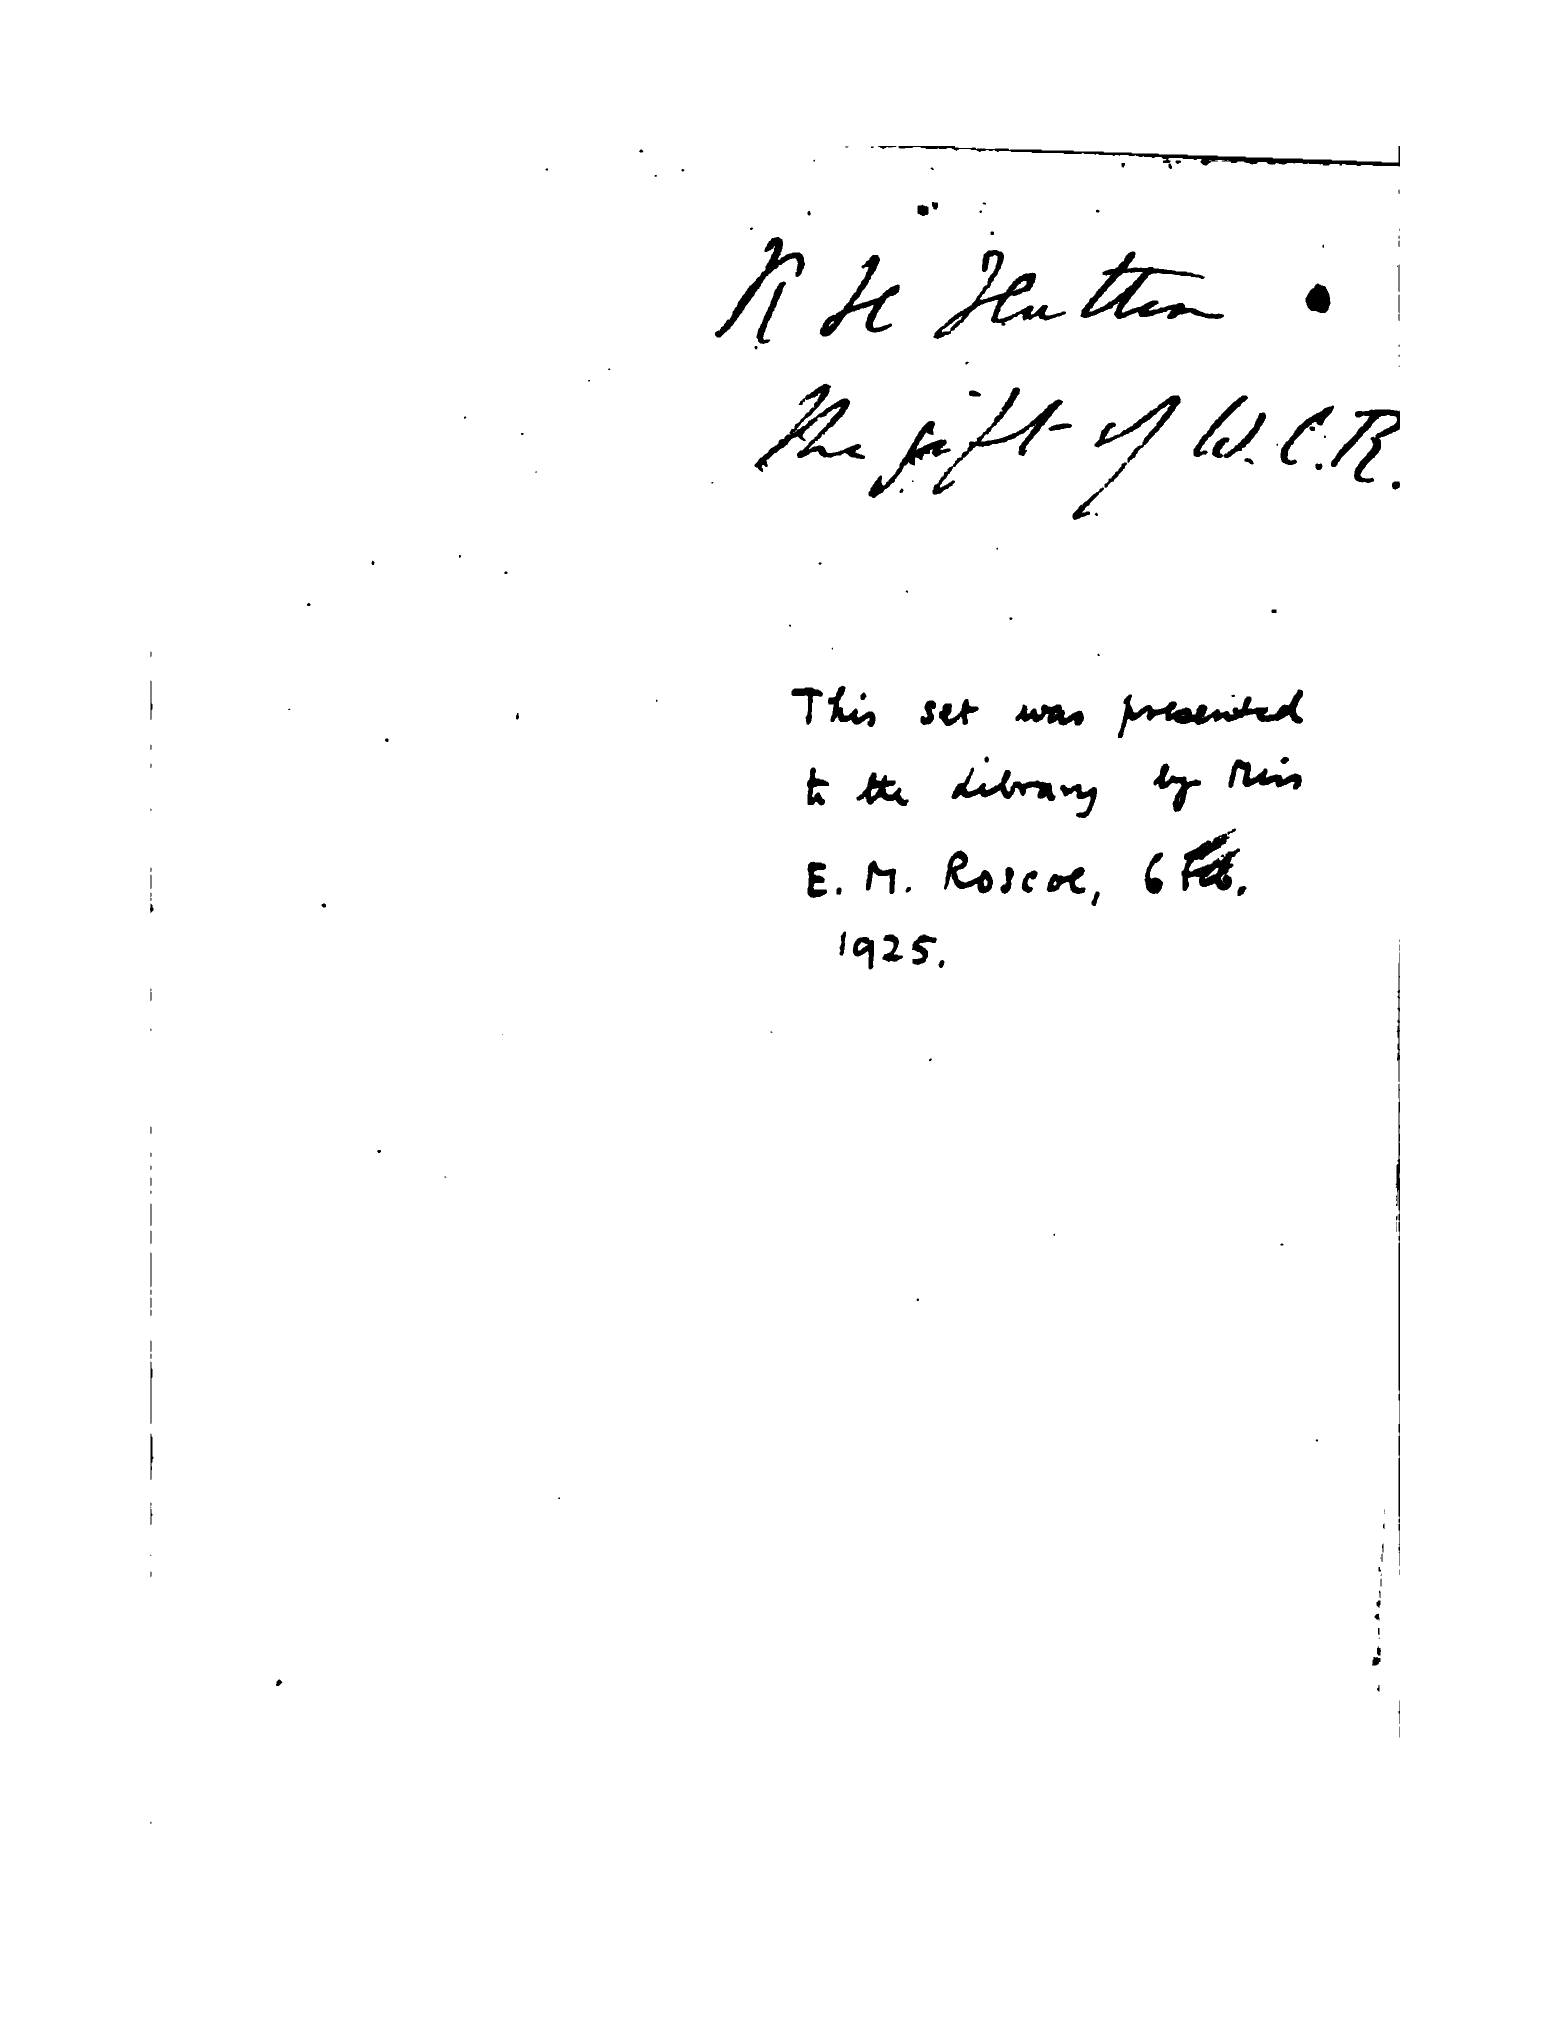 R H Hutton
The gift of W.C.R.
This set was presented
to the Library by Miss
E. M. Roscoe, 6 Feb.
1925.